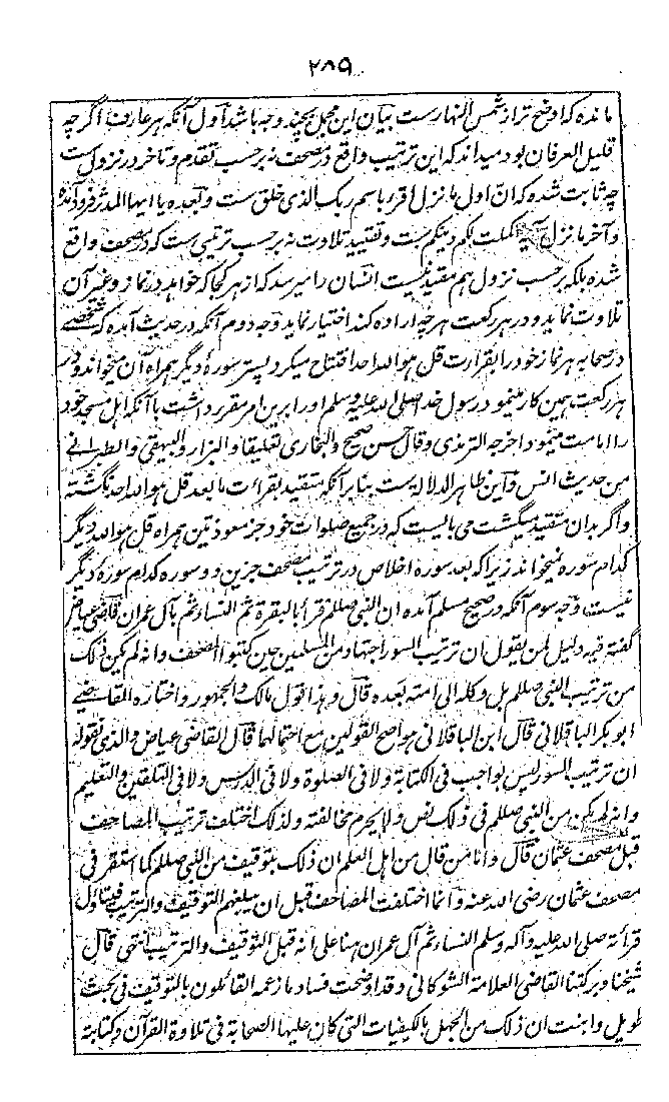 ۲۸۹
مانده که اوضح تر از شمس النهارست بیان این مجمل بچند وجه باشد اول آنکه هر عارف اگرچه
قلیل العرفان بود میداند که این ترتیب واقع در مصحف نه برحسب تقدم و تاخر در نزول ست
چه ثابت شده که ان اول ما نزل اقرء باسم ربک الذی خلق ست و بعده یا ایها المدثر فرود آمده
و آخر ما نزل آیه اکملت لکم دینکم ست و تقیید تلاوت نه برحسب ترتیبی ست که در مصحف واقع
شده بلکه برحسب نزول هم مقید نیست انسان را میرسد که از هر کجا که خواهد در نماز و غیر آن
تلاوت نماید و در هر رکعت هرچه اراده کند اختیار نماید وجه دوم آنکه در حدیث آمده که شخصے
در صحابه هر نماز خود را بقرارت قل هو الله احد افتتاح میکرد پستر سورهٔ دیگر همراه آن میخواند و در
هر رکعت همین کار مینمود و رسول خدا صلی الله علیه وسلم او را برین امر مقرر داشت با آنکه اهل مسجد خود
را امامت مینمود اخرجه الترمذی وقال حسن صحیح والبخاری تعلیقا والبزار والبیهقی والطبرانے
من حدیث انس و این ظاهر الدلاله ست بنابر آنکه متقید بقراءت ما بعد قل هو الله احد نگشته
و اگر بدان متقید میگشت می بایست که در جمیع صلوات خود جز معوذتین همراه قل هو الله دیگر
کدام سوره نمیخواند زیراکه بعد سوره اخلاص در ترتیب مصحف جز این دو سوره کدام سورهٔ دیگر
نیست وجه سوم آنکه در صحیح مسلم آمده ان النبی صللم قرأ بالبقرة ثم النساء ثم بآل عمران قاضی عیاض
گفته فیه دلیل لمن یقول ان ترتیب السور اجتهاد من المسلمین حین کتبوا المصحف وانه لم یکن ذلک
من ترتیب النبی صللم بل وکله الی امته بعده قال وهذا قول مالک والجمهور واختاره القاضے
ابوبکر الباقلانی قال ابن الباقلانی هو اصح القولین مع احتمالهما قال القاضی عیاض والذی نقوله
ان ترتیب السور لیس بواجب فی الکتابة ولا فی الصلوة ولا فی الدرس ولا فی التلقین والتعلیم
وانه لم یکن من النبی صللم فی ذلک نص ولا یحرم مخالفته ولذلک اختلف ترتیب المصاحف
قبل مصحف عثمان قال واما من قال من اهل العلم ان ذلک بتوقیف من النبی صللم کما استقر فی
مصحف عثمان رضی الله عنه وانما اختلفت المصاحف قبل ان یبلغهم التوقیف والترتیب فیتاول
قرأته صلی الله علیه وآله وسلم النساء ثم آل عمران هنا علی انه قبل التوقیف والترتیب انتهی قال
شیخنا وبرکتنا القاضی العلامة الشوکانی وقد اوضحت فساد ما زعمه القائلون بالتوقیف فی بحث
طویل وابنت ان ذلک من الجهل بالکیفیات التی کان علیها الصحابة فی تلاوة القرآن وکتابته